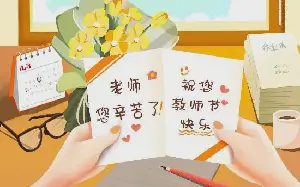 老师
您辛苦了!
祝您
教师节
快乐